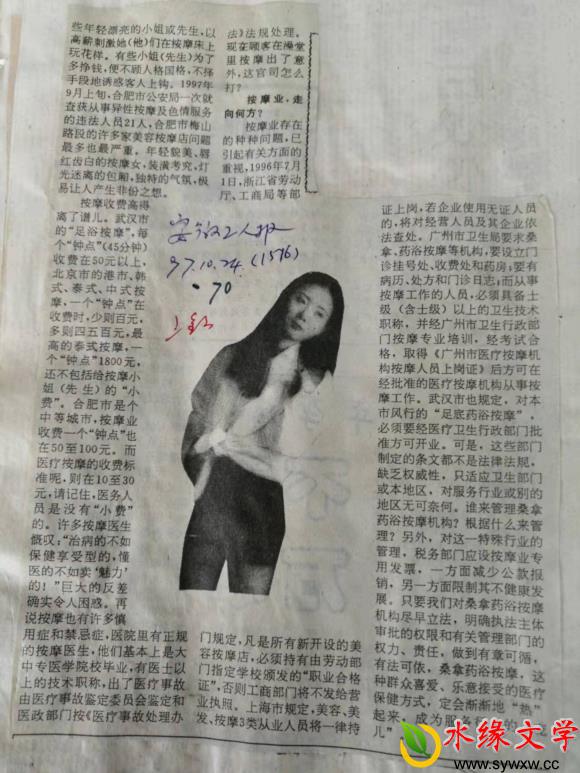 些年轻漂亮的小姐或先生，以
高薪刺激她(他)们在按摩床上
玩花样。有些小姐(先生)为了
多挣钱，便不顾人格国格，不择
手段地诱惑客人上钩。1997年
9月上旬，合肥市公安局一次就
查获从事异性按摩及色情服务
的违法人员21人，合肥市梅山
路段的许多家美容按摩店问题
最多也最严重。年轻貌美、唇
红齿白的按摩女，装潢考究，灯
光迷离的包厢，独特的气氛，极
易让人产生非份之想。
按摩收费高得
离了谱儿。武汉市
的“足浴按摩”，每
个“钟点”(45分钟)
收费在50元以上，
北京市的港市、韩
式、泰式、中式按
摩，一个“钟点”在
收费时，少则百元，
多则四五百元，最
高的泰式按摩，一
个“钟点”1800元，
还不包括给按摩小
姐(先生)的“小
费”。合肥市是个
中等城市，按摩业
收费一个“钟点”也
在50至100元。而
医疗按摩的收费标
准呢，则在10至30
元，请记住，医务人
员是没有“小费”
的。许多按摩医生
慨叹：“治病的不如
保健享受型的，懂
医的不如卖‘魅力’
的！”巨大的反差
确实令人困惑。再
说按摩也有许多慎
用症和禁忌症，医院里有正规
的按摩医生，他们基本上是大
中专医学院校毕业，有医士以
上的技术职称，出了医疗事故
由医疗事故鉴定委员会鉴定和
医政部门按《医疗事故处理办
法》法规处理。
现在顾客在澡堂
里按摩出了意
外，这官司怎么
打？
按摩业，走
向何方？
按摩业存在
的种种问题，已
引起有关方面的
重视，1996年7月
1日，浙江省劳动
厅、工商局等部
安徽工人报
97.10.24(1576)
·70
门规定，凡是所有新开设的美
容按摩店，必须持有由劳动部
门指定学校颁发的“职业合格
证”，否则工商部门将不发给营
业执照。上海市规定，美容、美
发、按摩3类从业人员将一律持
证上岗，若企业使用无证人员
的，将对经营人员及其企业依
法查处。广州市卫生局要求桑
拿、药浴按摩等机构，要设立门
诊挂号处、收费处和药房；要有
病历、处方和门诊日志；而从事
按摩工作的人员，必须具备士
级（含士级）以上的卫生技术
职称，并经广州市卫生行政部
门按摩专业培训，经考试合
格，取得《广州市医疗按摩机
构按摩人员上岗证》后方可在
经批准的医疗按摩机构从事按
摩工作。武汉市也规定，对本
市风行的“足底药浴按摩”，
必须要经医疗卫生行政部门批
准方可开业。可是，这些部门
制定的条文都不是法律法规，
缺乏权威性，只适应卫生部门
或本地区，对服务行业或别的
地区无可奈何。谁来管理桑拿
药浴按摩机构？根据什么来管
理？另外，对这一特殊行业的
管理，税务部门应设按摩业专
用发票，一方面减少公款报
销，另一方面限制其不健康发
展。只要我们对桑拿药浴按摩
机构尽早立法，明确执法主体
审批的权限和有关管理部门的
权力、责任，做到有章可循，
有法可依，桑拿药浴按摩，这
种群众喜爱、乐意接受的医疗
保健方式，定会渐渐地“热”
起来，成为服务
儿”
水缘文学
www.sywxw.cc